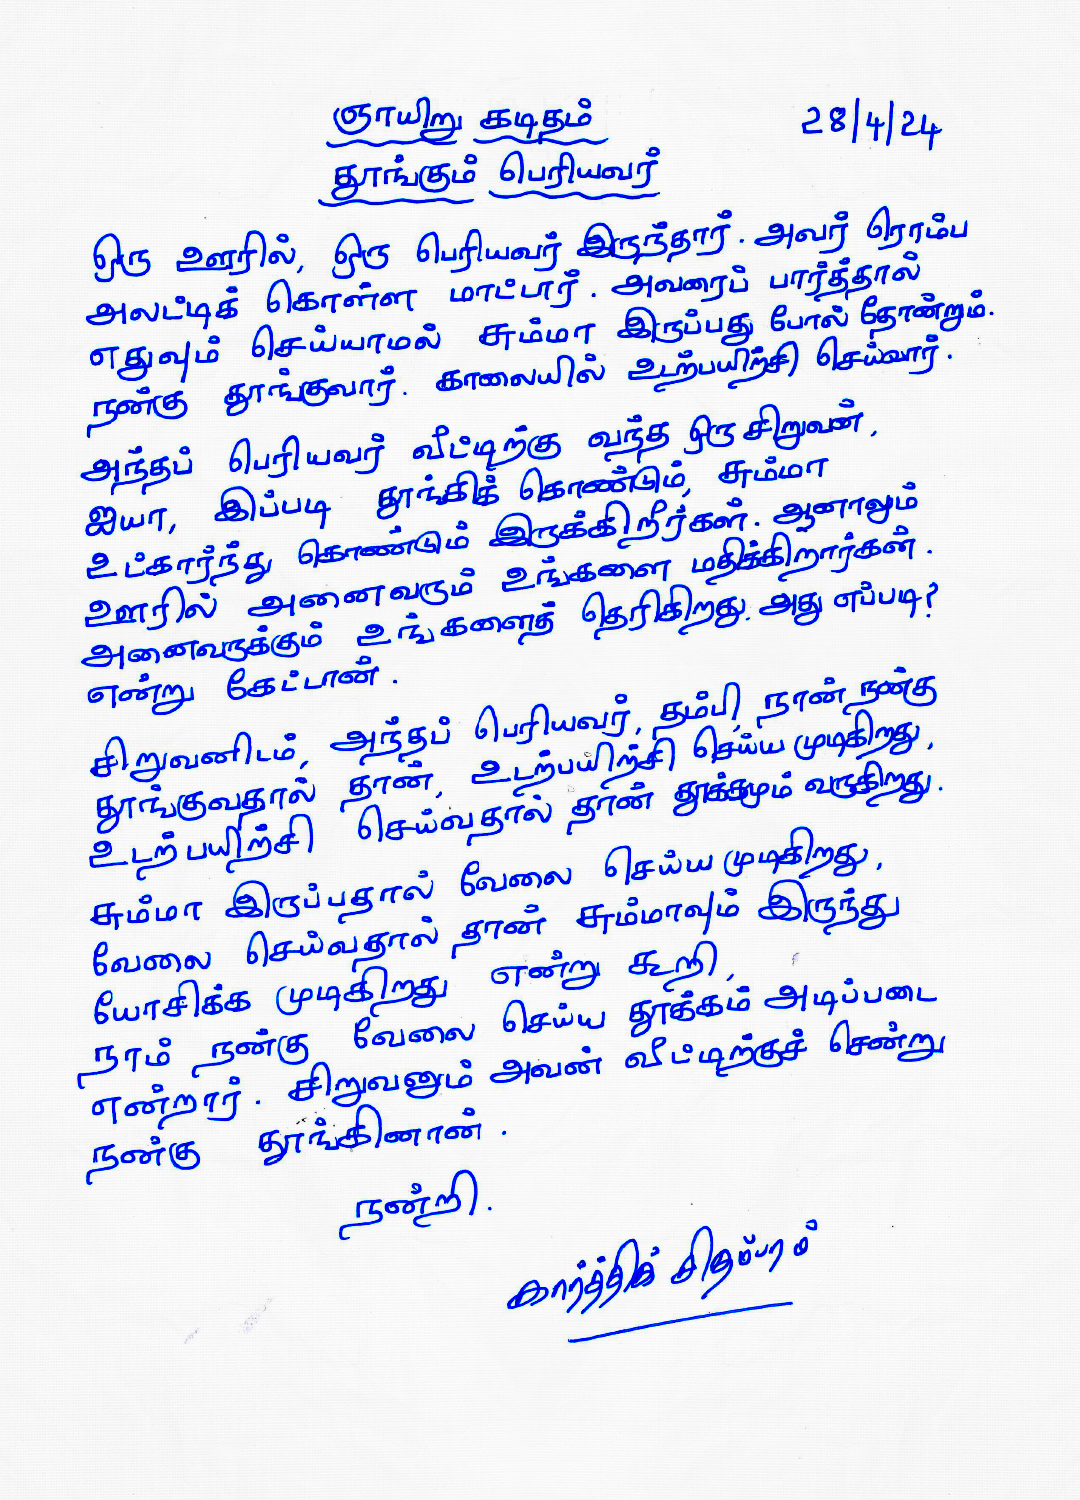 ஞாயிறு கடிதம் 28/4/24
தூங்கும் பெரியவர்
ஒரு ஊரில், ஒரு பெரியவர் இருந்தார். அவர் ரொம்ப
அலட்டிக் கொள்ள மாட்டார். அவரைப் பார்த்தால்
எதுவும் செய்யாமல் சும்மா இருப்பது போல் தோன்றும்.
நன்கு தூங்குவார். காலையில் உடற்பயிற்சி செய்வார்.
அந்தப் பெரியவர் வீட்டிற்கு வந்த ஒரு சிறுவன்,
ஐயா, இப்படி தூங்கிக் கொண்டும், சும்மா
உட்கார்ந்து கொண்டும் இருக்கிறீர்கள். ஆனாலும்
ஊரில் அனைவரும் உங்களை மதிக்கிறார்கள்.
அனைவருக்கும் உங்களைத் தெரிகிறது. அது எப்படி?
என்று கேட்டான்.
சிறுவனிடம், அந்தப் பெரியவர், தம்பி, நான் நன்கு
தூங்குவதால் தான், உடற்பயிற்சி செய்ய முடிகிறது,
உடற்பயிற்சி செய்வதால் தான் தூக்கமும் வருகிறது.
சும்மா இருப்பதால் வேலை செய்ய முடிகிறது,
வேலை செய்வதால் தான் சும்மாவும் இருந்து
யோசிக்க முடிகிறது என்று கூறி,
நாம் நன்கு வேலை செய்ய தூக்கம் அடிப்படை
என்றார். சிறுவனும் அவன் வீட்டிற்குச் சென்று
நன்கு தூங்கினான்.
நன்றி.
கார்த்திக் சிதம்பரம்